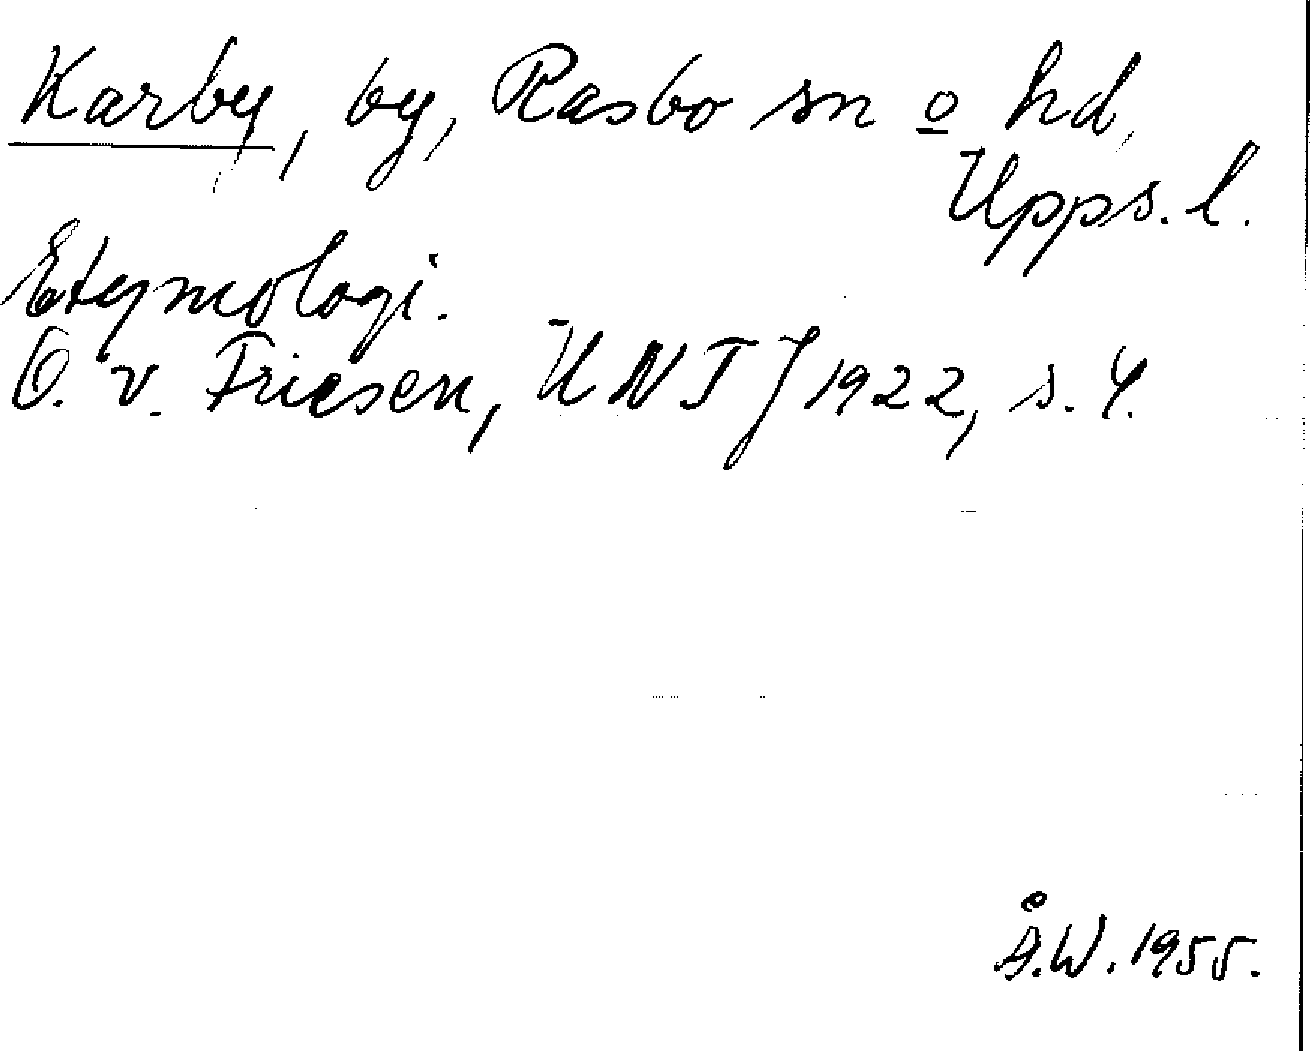 Karby, by, Rasbo sn o hd,
Upps. l.
Etymologi.
O. v. Friesen, UNTJ 1922, s. 4.
Å.W. 1955.